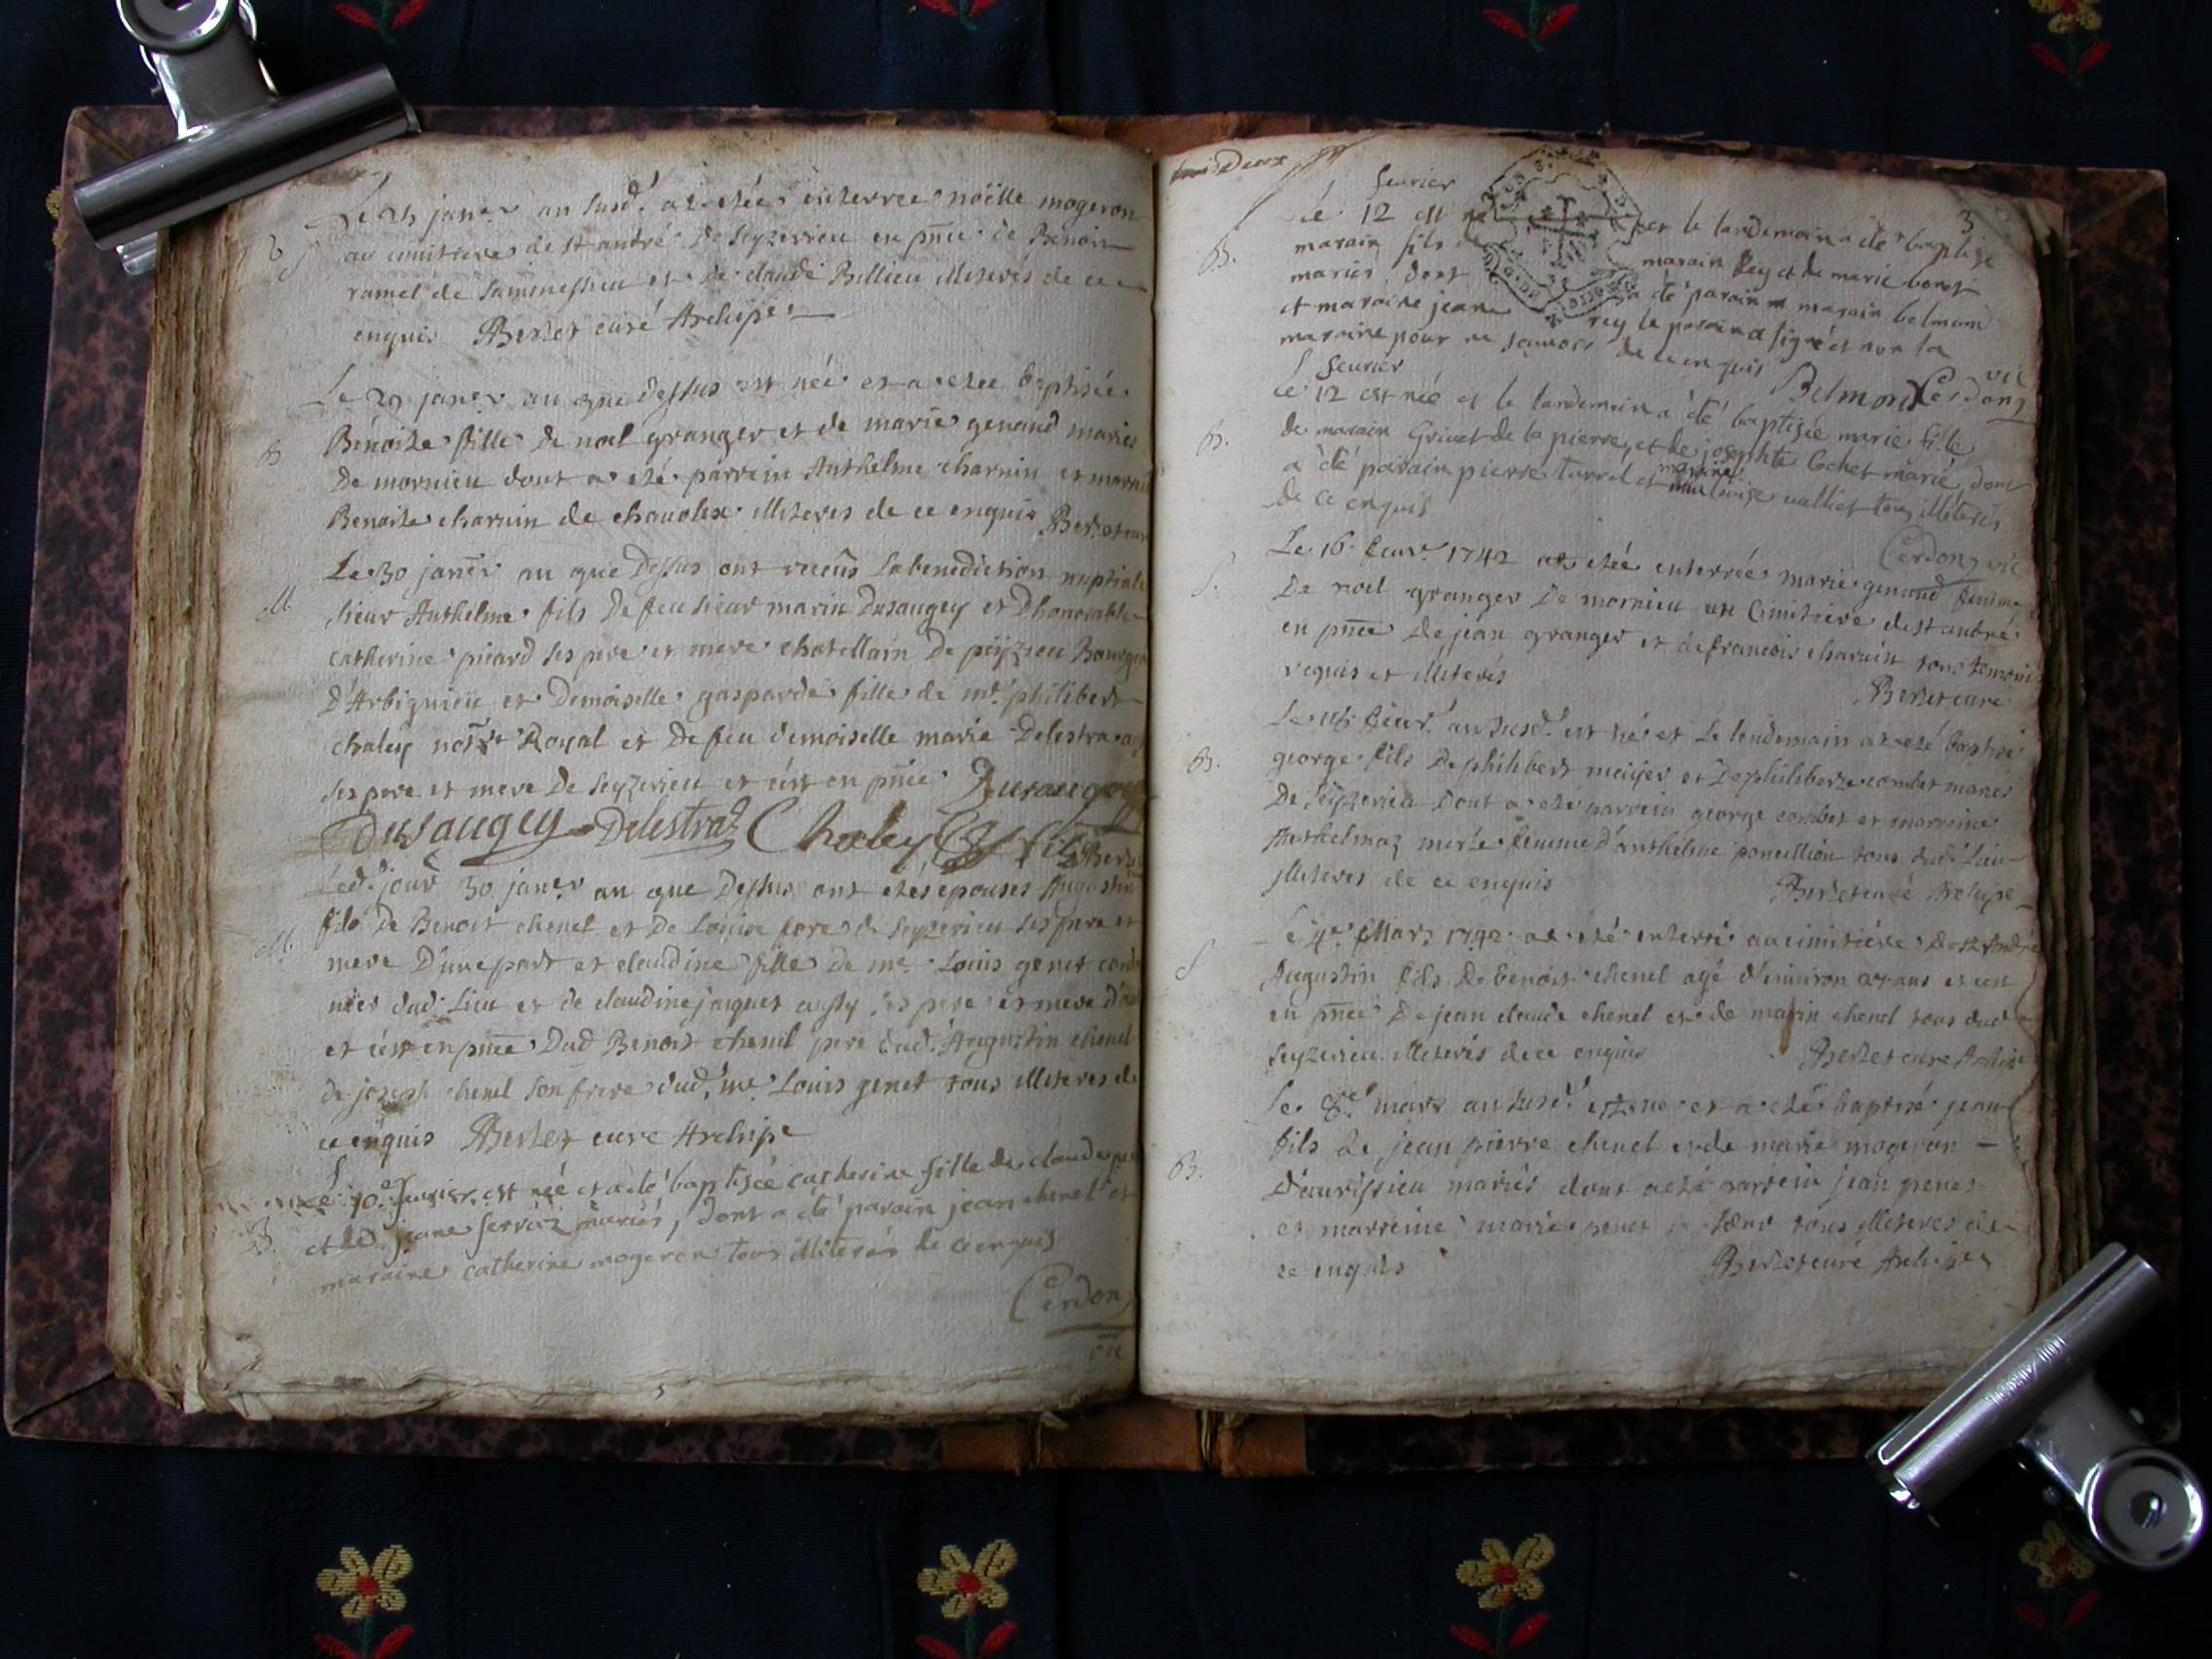 Le janer an susd. a estée enterree noëlle mogeron
S
au cimitiere de st andré de Seyzerieu en pnce de Benoit
ramel de et de claude Billieu illiteres de ce
enquis Berlet curé Archipr.
Le 29 janer an que Dessus est née et a etee baptisée
B
Benoite fille de noel granger et de marie genaud maries
De mornieu dont a eté parrein Anthelme charuin et marrei
Benoite charuin de illiteres de ce enquis Berlet cure
Le 30 janer an que Dessus ont receus la benediction nuptiale
M
sieur Anthelme fils De feu sieur marin Dusaugey et Dhonorable
catherine picard ses pere et mere chatellain De peyzieu Bourgeo
D'Arbignieu et Demoiselle gasparde fille de mr philibert
chaley notre Royal et De feu demoiselle marie Delestra
ses pere et mere De Seyzerieu et c'est en pnce Dusaugey
Dusaugey Delestraz Chaley
Led. jour 30 janer an que Dessus ont etes epouses Augustin
fils De Benoit chenel et De Louise de Seyzerieu ses pere et
M.
mere D'une part et claudine fille De me Louis genet cordo
nier dud. Lieu et de claudine jacquet ses pere et mere d'
et c'est en pnce Dud Benoit chenel pere dud. Augustin chenel
de joseph chenel son frere dud. me Louis genet tous illiteres de
ce enquis Berlet cure Archipr
Le 10e feurier est née et a été baptisée catherine fille de claude
B.
et de jeane mariés, dont a été parain jean chenel et
maraine catherine mogeron tous illiterés de ce enquis
Cerdon
vic
Deux
3
feurier
Le 12 est né et le landemain a été baptisé
B.
marain fils de marain Rey et de marie
mariés dont a été parain marain belmond
et maraine jeane rey le parain a signé et non la
maraine pour ne scauoir de ce enquis
Belmond Cerdon vic
feurier
Le 12 est née et le landemain a été baptisée marie fille
B.
de marain Griuet de la pierre, et de josephte Cochet marié, dont
a été parain pierre turrel et maraine louise
de ce enquis
Cerdon vic
Le 16 feur. 1742 a etée enterrée marie genaud femme
S.
De noel granger De mornieu au Cimitiere de st andré
en pnce De jean granger et de francois charuin tous temoins
requis et illiterés
Berlet cure
Le feur. an susd. est né et Le lendemain a eté baptisé
B.
george fils De philibert meiyer et De philiberte combet mariés
De Seyzerieu dont a eté parrein george combet et marreine
Anthelmaz merle femme d'anthelme poncillion tous dud. Lieu
illiteres de ce enquis
Berlet curé Archipr
Le 4e Mars 1742 a eté enterré au cimitiére de st André
S
Augustin fils De benoit chenel agé d'enuiron ans et c'est
en pnce De jean claude chenel et de marin chenel tous dud
Seyzerieu illiterés de ce enquis
Berlet cure Archipr
Le 8e mars an susd. est né et a eté baptisé jean
B.
fils de jean pierre chenel et de marie mogeron
D'aurissieu mariés dont a eté parrein jean genet
et marreine marie genet sa soeur tous illiteres de
ce enquis
Berlet curé Archipr